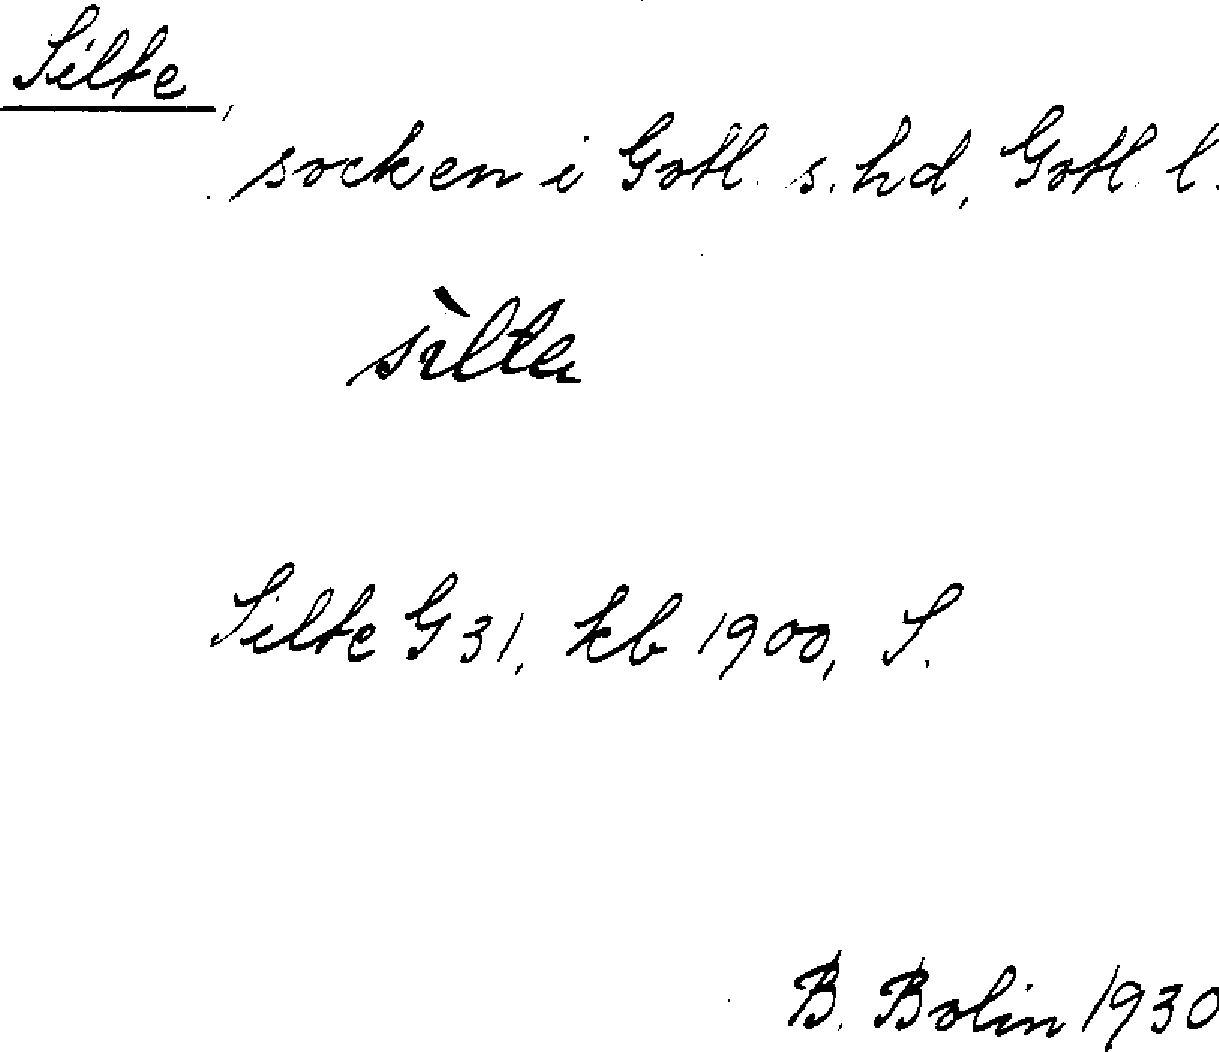 Silte,
socken i Gotl. s. hd, Gotl. l.
sìlte
Silte G 31, kb 1900, S.
B. Bolin 1930